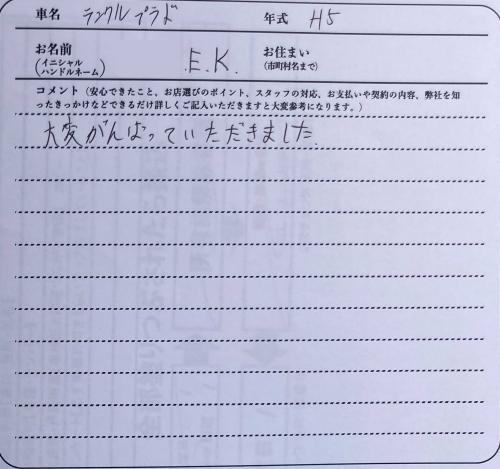 車名 ランクルプラド 年式 H5
お名前 (イニシャル ハンドルネーム) E.K. お住まい (市町村名まで)
コメント（安心できたこと、お店選びのポイント、スタッフの対応、お支払いや契約の内容、弊社を知
ったきっかけなどできるだけ詳しくご記入いただきますと大変参考になります。）
大変がんばっていただきました.